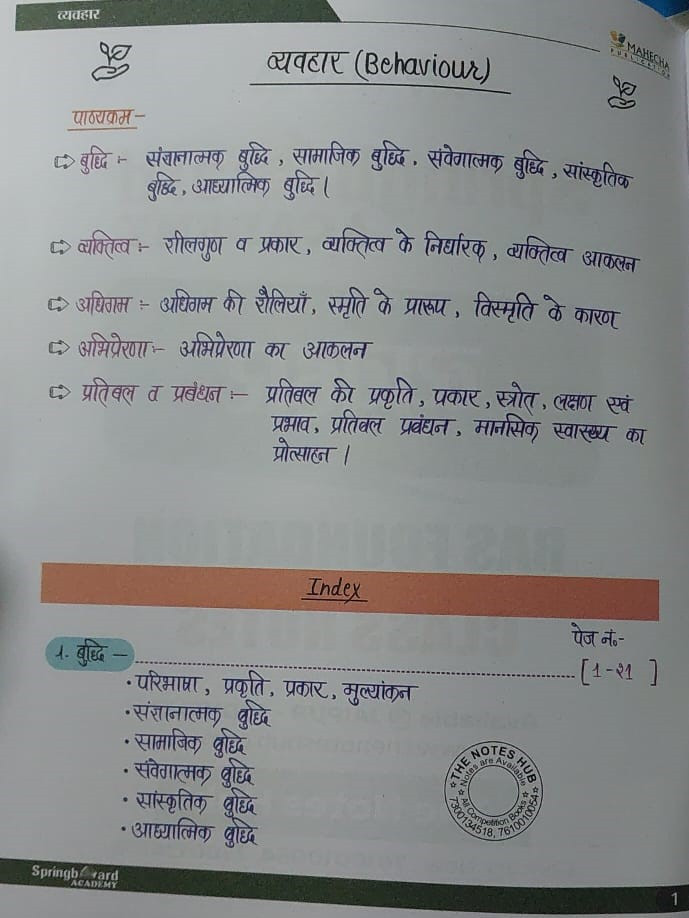 व्यवहार
MAHECHA
PUBLICATION
व्यवहार (Behaviour)
पाठ्यक्रम -
⇨ बुद्धि :- संज्ञानात्मक बुद्धि, सामाजिक बुद्धि, संवेगात्मक बुद्धि, सांस्कृतिक
बुद्धि, आध्यात्मिक बुद्धि।
⇨ व्यक्तित्व :- शीलगुण व प्रकार, व्यक्तित्व के निर्धारक, व्यक्तित्व आकलन
⇨ अधिगम :- अधिगम की शैलियाँ, स्मृति के प्रारूप, विस्मृति के कारण
⇨ अभिप्रेरणा :- अभिप्रेरणा का आकलन
⇨ प्रतिबल व प्रबंधन :- प्रतिबल की प्रकृति, प्रकार, स्त्रोत, लक्षण एवं
प्रभाव, प्रतिबल प्रबंधन, मानसिक स्वास्थ्य का
प्रोत्साहन।
Index
पेज नं.-
1. बुद्धि - [1-21]
• परिभाषा, प्रकृति, प्रकार, मुल्यांकन
• संज्ञानात्मक बुद्धि
• सामाजिक बुद्धि
• संवेगात्मक बुद्धि
• सांस्कृतिक बुद्धि
• आध्यात्मिक बुद्धि
THE NOTES HUB
Notes are Available
All Competition Books
7300134518, 7610010054
Springboard
ACADEMY
1